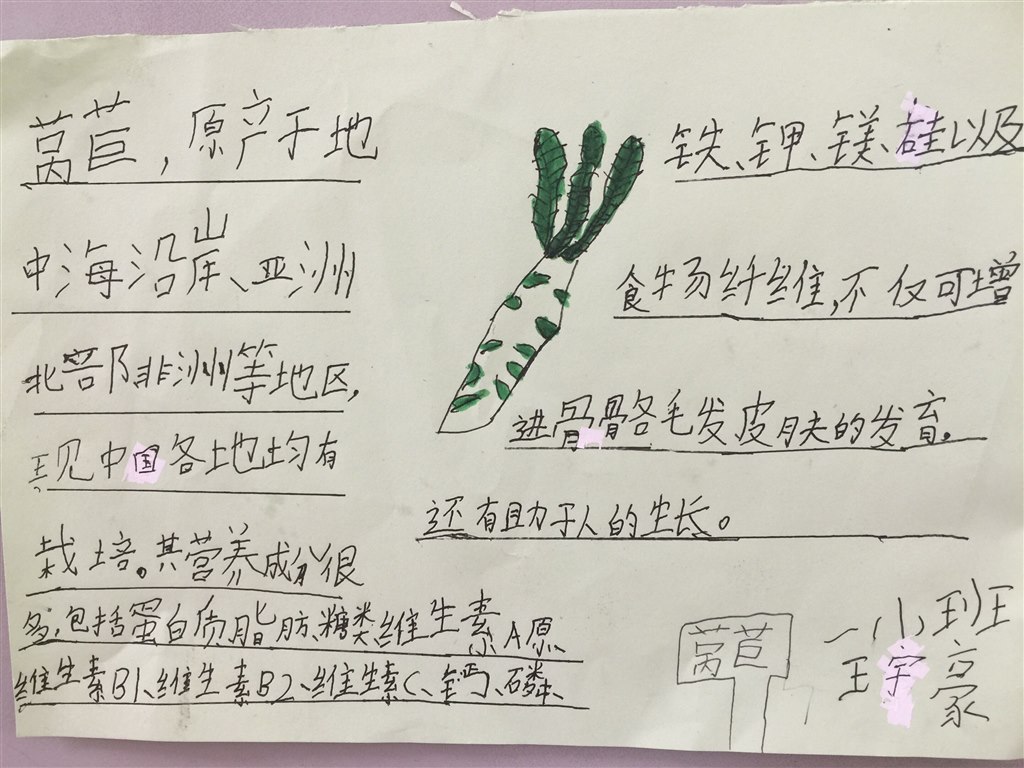 莴苣，原产于地
中海沿岸、亚洲
北部、非洲等地区，
现中国各地均有
栽培。其营养成分很
多，包括蛋白质脂肪、糖类、维生素A原、
维生素B1、维生素B2、维生素C、钙、磷、
铁、钾、镁、硅以及
食物纤维，不仅可增
进骨骼毛发皮肤的发育。
还有助于人的生长。
莴苣
一小班
王宇豪